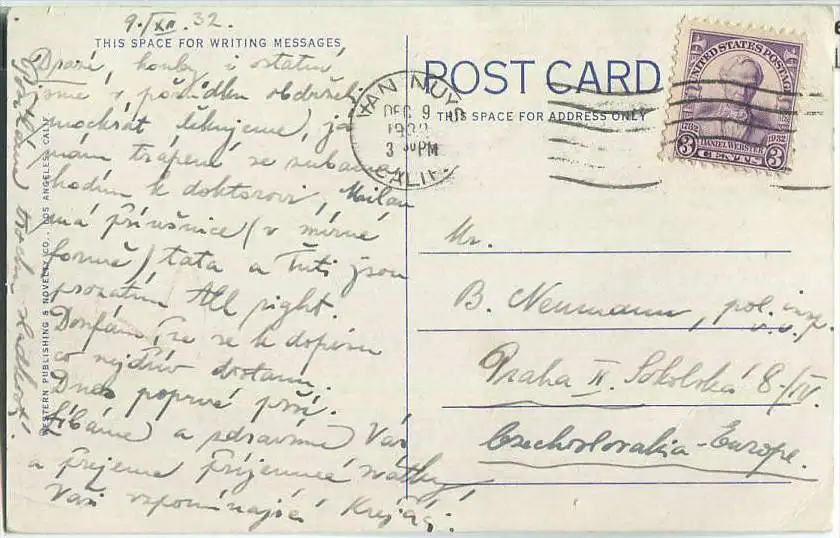 9./XII.32.
THIS SPACE FOR WRITING MESSAGES
Drazí, houby i ostatní
jsme v pořádku obdrželi
mockrát děkujeme, já
mám trápení se zubama
chodím k doktorovi, Milan
má příušnice (v mírné
formě) táta a Tuti jsou
prozatím All right.
Doufám, že se k dopisu
co nejdřív dostanu.
Dnes poprvé prší.
Líbáme a zdravíme Vás
a přejeme příjemné svátky!
Vaši vzpomínající Krejčí.
WESTERN PUBLISHING & NOVELTY CO., LOS ANGELES, CALIF.
POST CARD
THIS SPACE FOR ADDRESS ONLY
VAN NUYS
DEC 9
3 30 PM
CALIF.
UNITED STATES POSTAGE
1782 1932
DANIEL WEBSTER
3 CENTS 3
Mr.
B. Neumann, pol. insp.
v.v.
Praha II. Sokolská 8/IV.
Czechoslovakia - Europe.